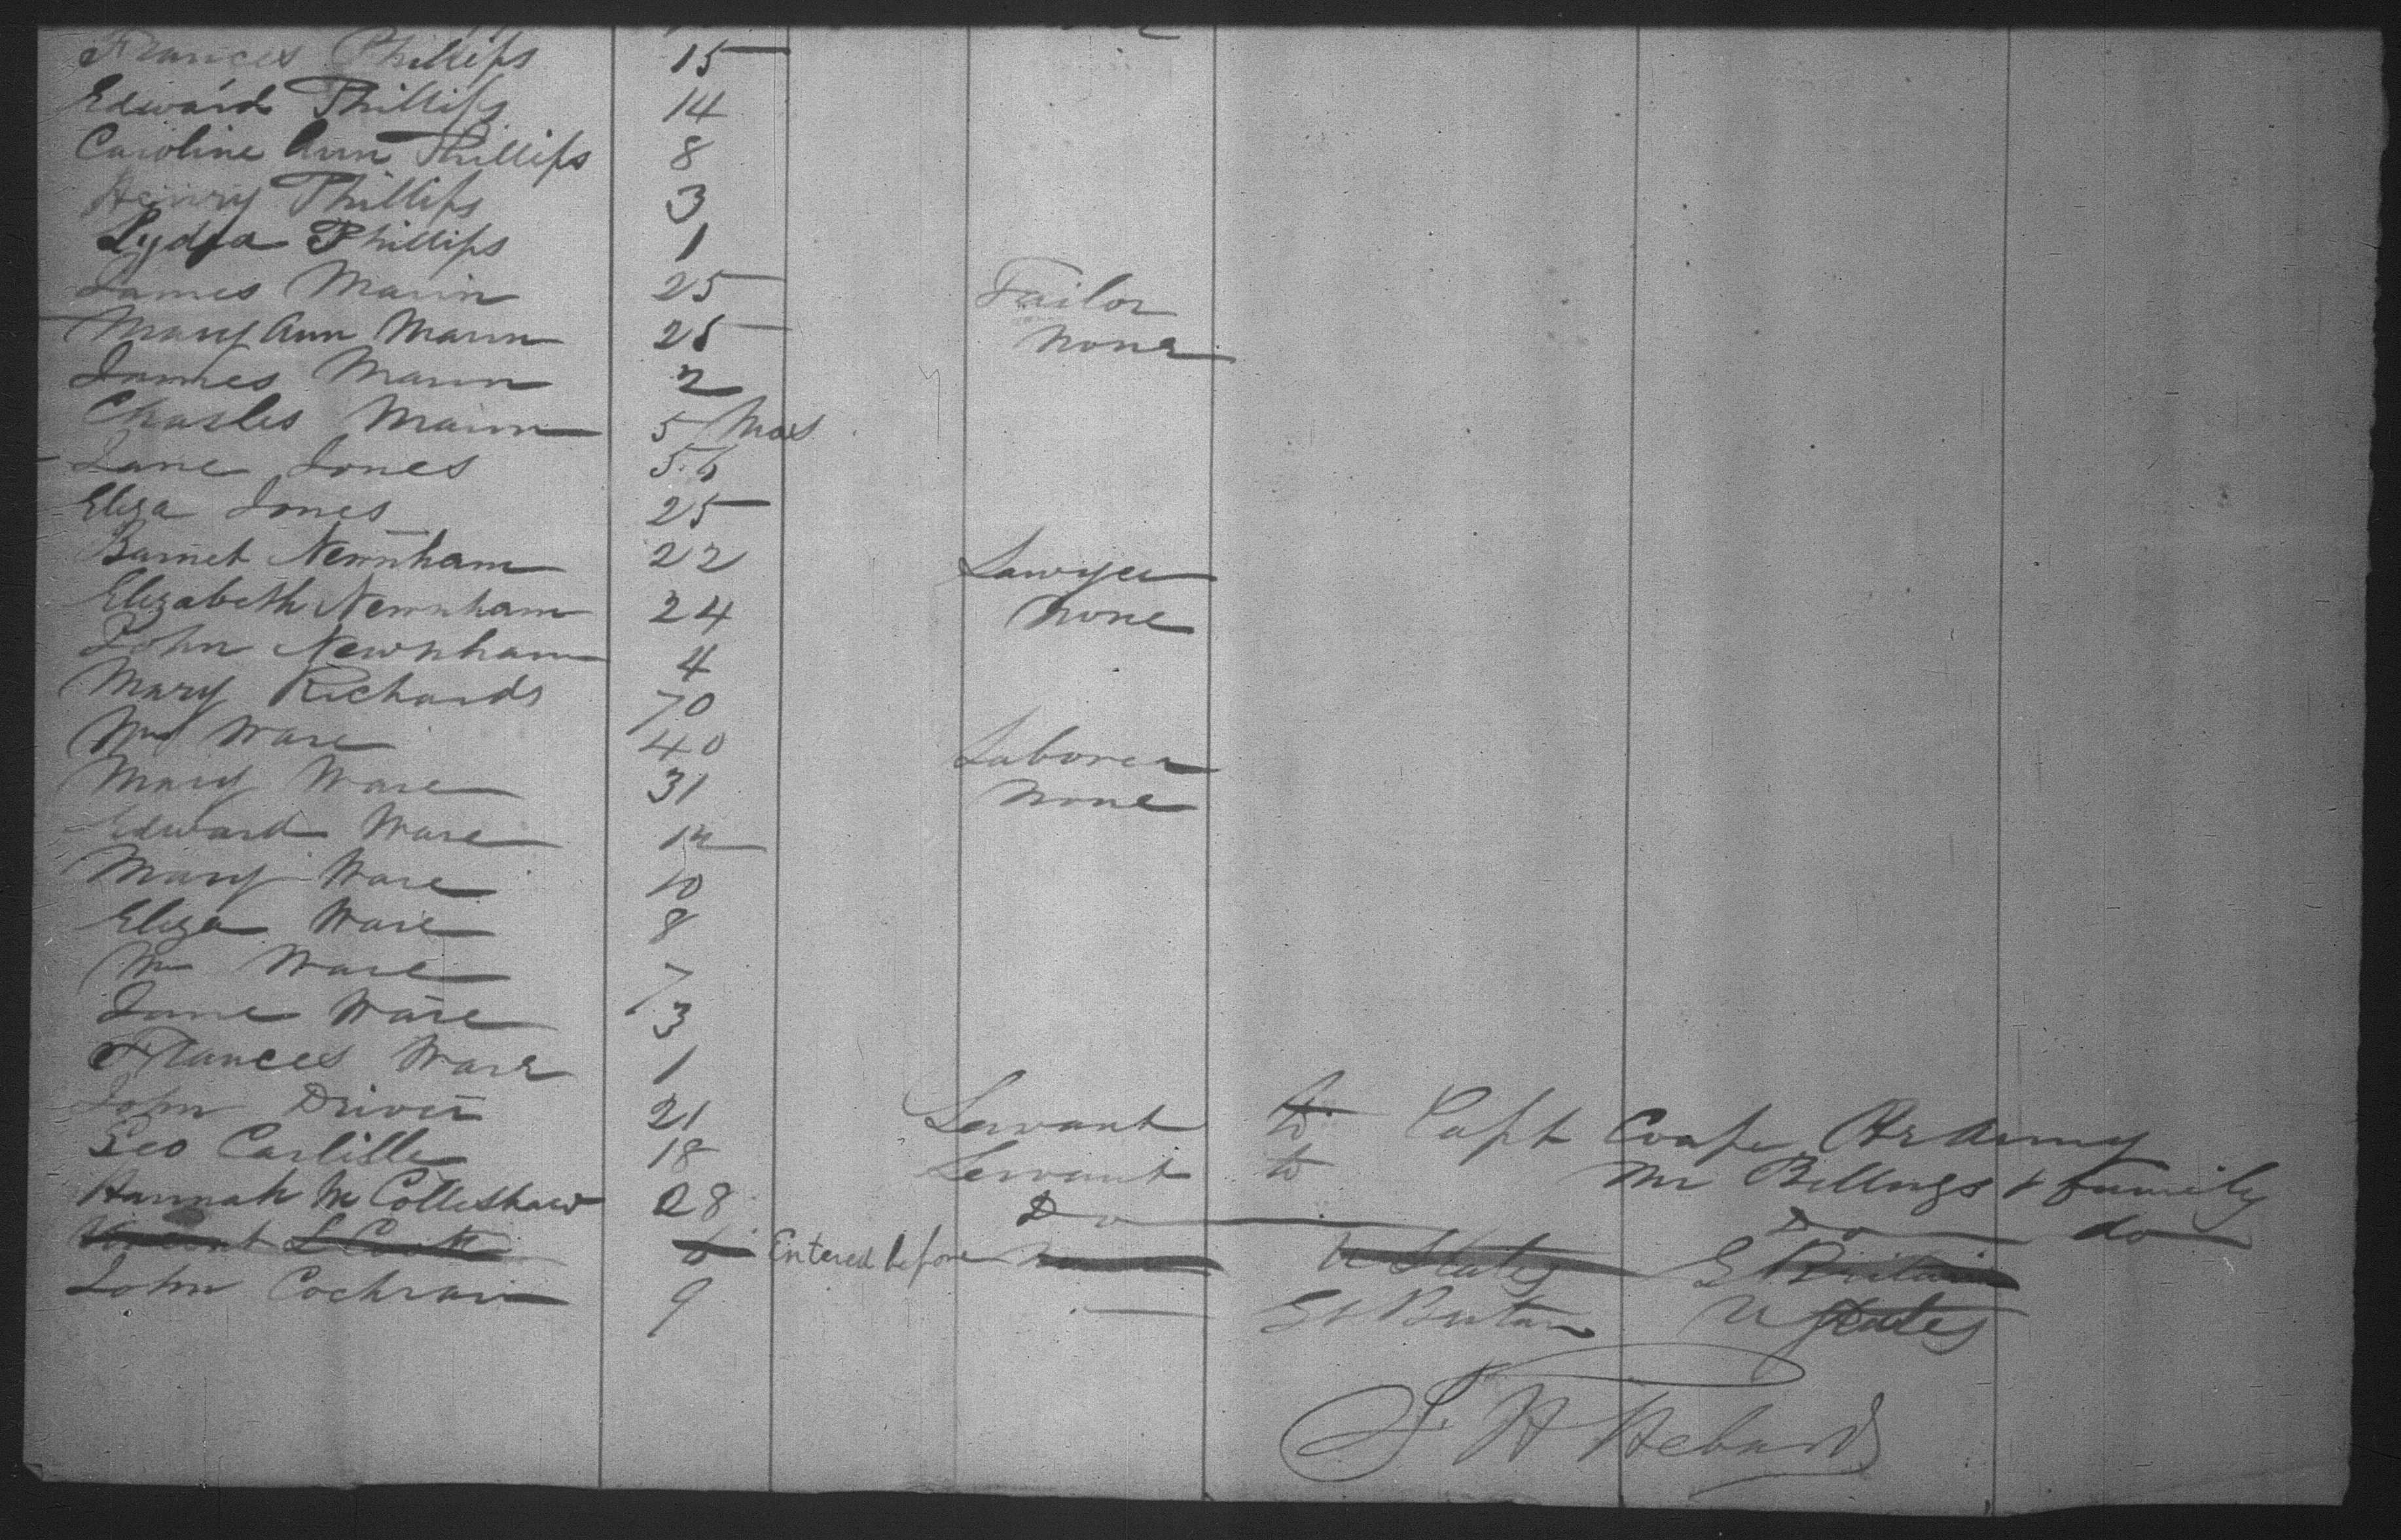 Frances Phillips 15
Edward Phillips 14
Caroline Ann Phillips 8
Henry Phillips 3
Lydia Phillips 1
James Mann 25 Tailor
Mary Ann Mann 25 None
James Mann 2
Charles Mann 5 Mos
Jane Jones 56
Eliza Jones 25
Barnet Newnham 22 Lawyer
Elizabeth Newnham 24 None
John Newnham 4
Mary Richards 70
Wm Ware 40 Laborer
Mary Ware 31 None
Edward Ware
Mary Ware 10
Eliza Ware 8
Wm Ware 7
Jane Ware 3
Frances Ware 1
John Driver 21 Servant to Capt Army
Geo Carlille 18 Servant to Mr Billings & family
Hannah M Colleshaw 28 Do Do do
6 Entered before None U States G Britain
John Cochran 9 Gt Britain U States
F. H. Hebard